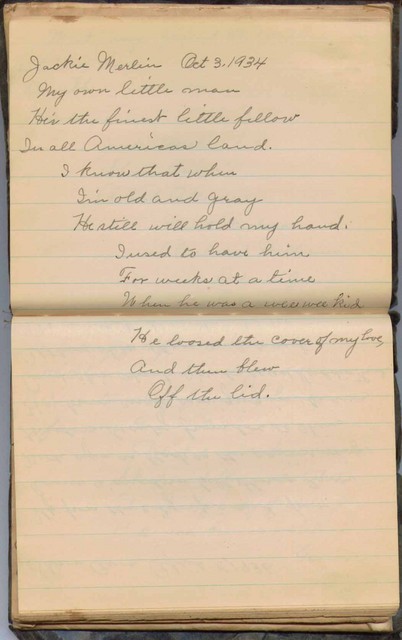 Jackie Merlin Oct 3. 1934
My own little man
He's the finest little fellow
In all Americas land.
I know that when
I'm old and gray
He still will hold my hand.
I used to have him
For weeks at a time
When he was a wee wee kid
He loosed the cover of my love,
And then blew
Off the lid.